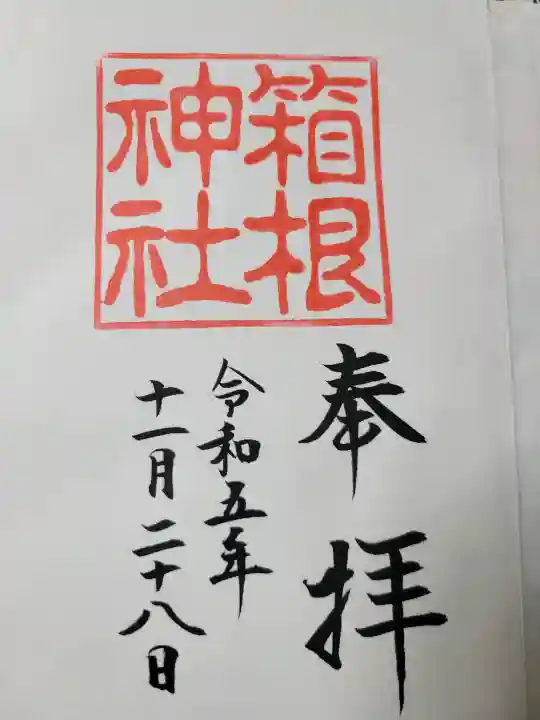 箱根
神社
奉拝
令和五年
十一月二十八日